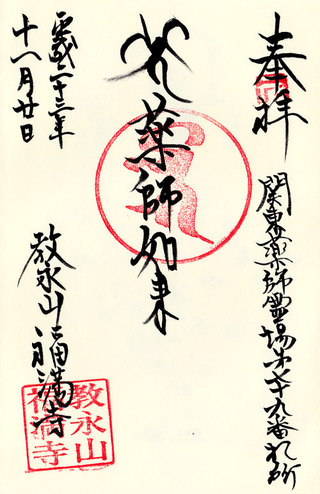 奉拝
関東薬師霊場 九番札所
薬師如来
平成二十三年
十一月廿日
教永山 福満寺
教永山
福満寺